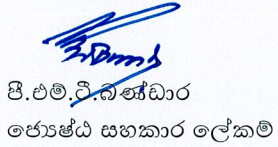 පී.එම්.ටී.බණ්ඩාර
ජ්‍යෙෂ්ඨ සහකාර ලේකම්